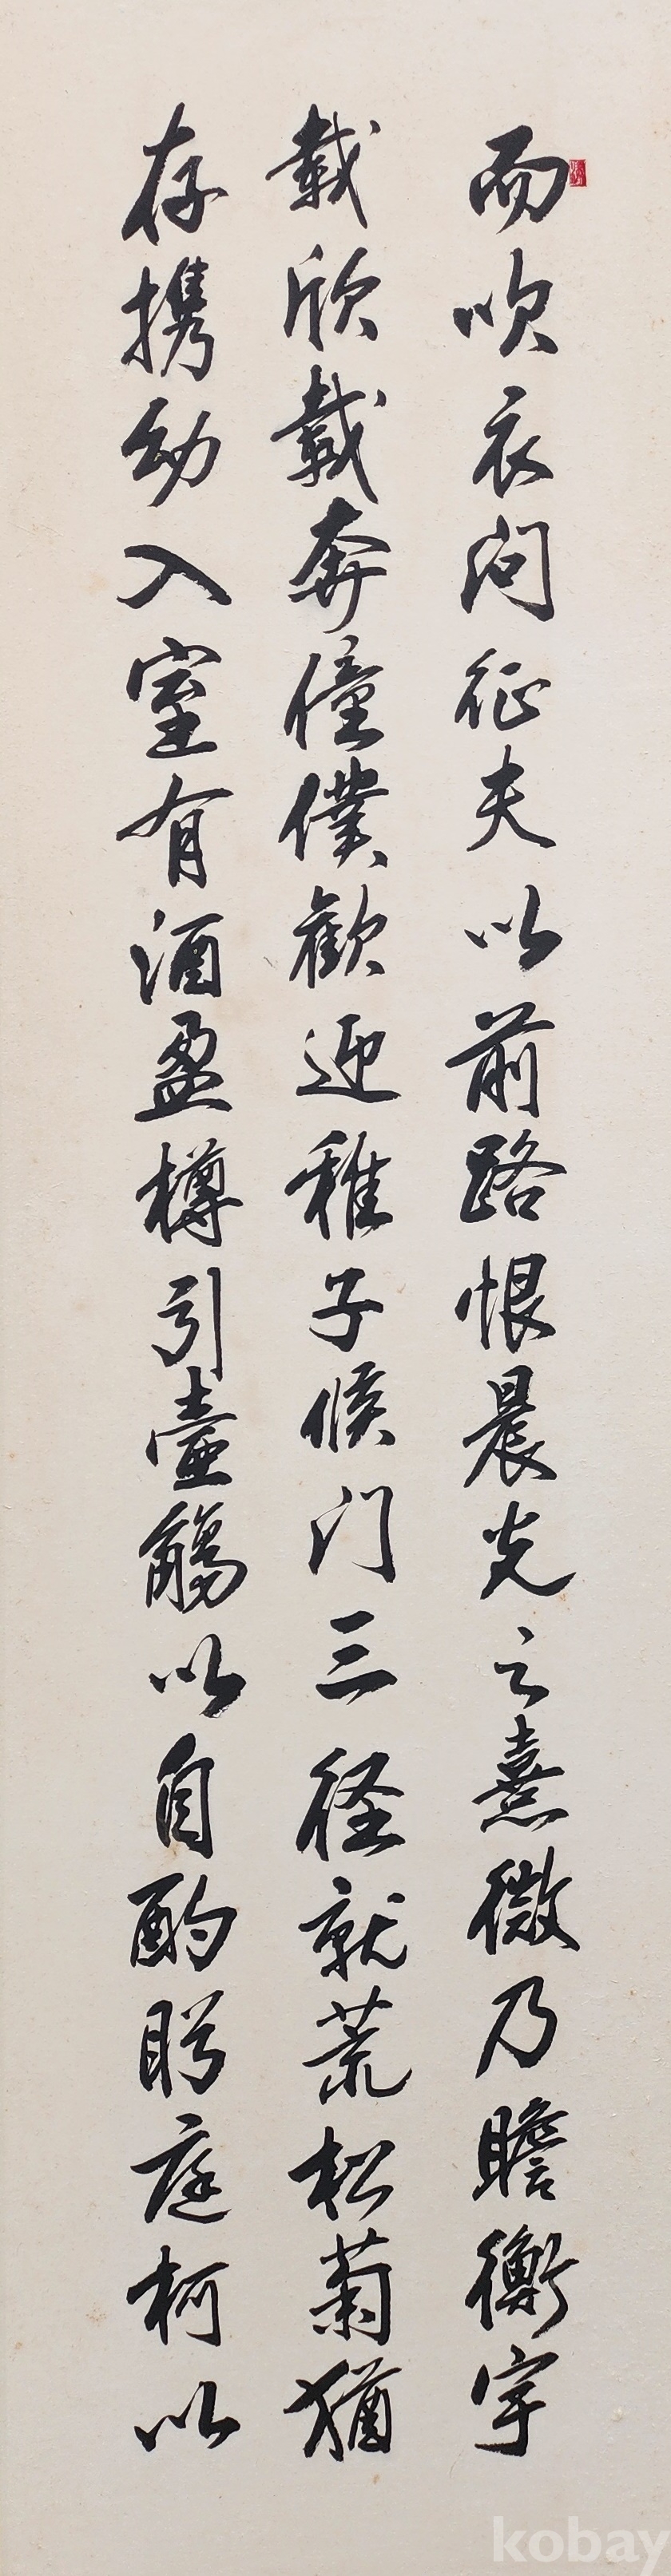 而吹衣問征夫以前路恨晨光之熹微乃瞻衡宇
載欣載奔僮僕歡迎稚子候门三径就荒松菊猶
存携幼入室有酒盈樽引壺觴以自酌眄庭柯以
kobay